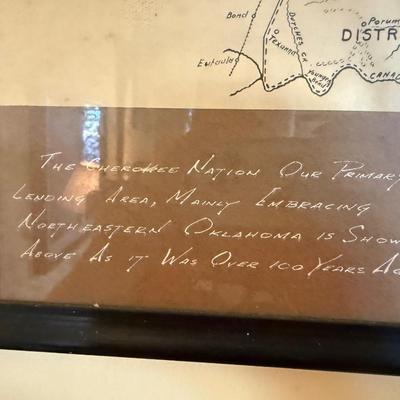 Bond
Porum
DISTR
Texanna
Dutches Cr
Eufaula
Younger Bend
CANA
The Cherokee Nation Our Primary
Lending Area, Mainly Embracing
Northeastern Oklahoma is Show
Above As it Was Over 100 Years Ag